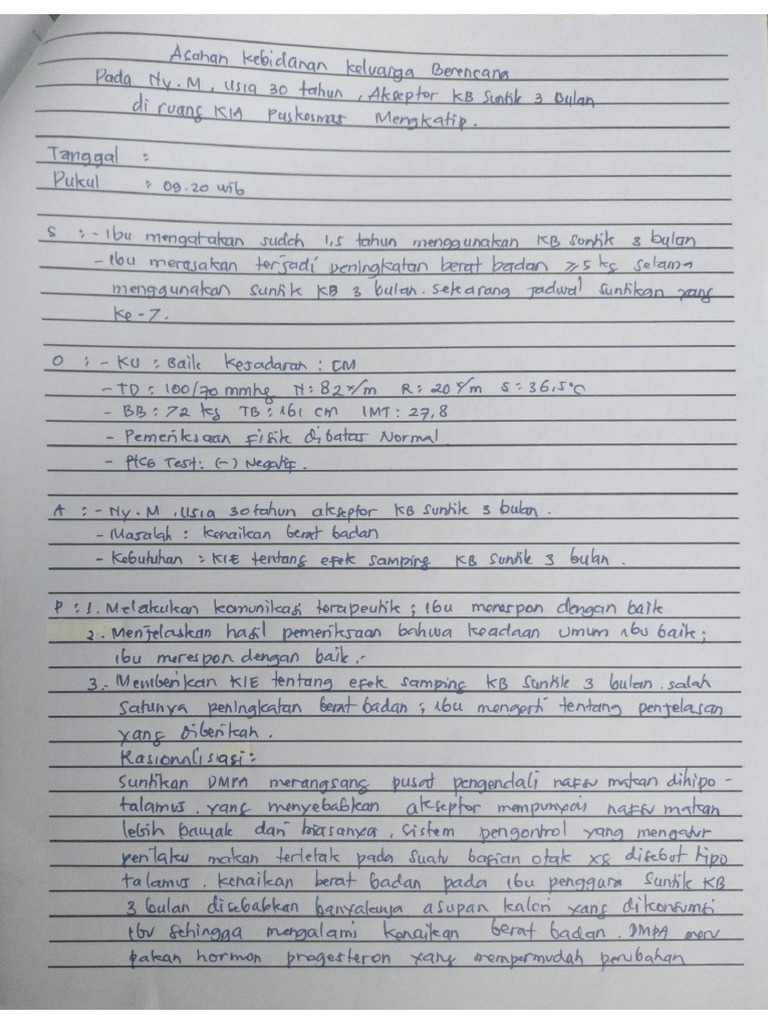 Asahan Kebidanan Keluarga Berencana
Pada Ny. M, Usia 30 tahun, Akseptor KB Suntik 3 Bulan
di ruang KIA Puskesmas Mengkatip.
Tanggal :
Pukul : 09.20 wib
S : - Ibu mengatakan sudah 1,5 tahun menggunakan KB Suntik 3 bulan
- Ibu merasakan terjadi peningkatan berat badan ≥5 kg selama
menggunakan suntik KB 3 bulan. Sekarang jadwal suntikan yang
ke-7.
O : - KU : Baik Kesadaran : CM
- TD : 100/70 mmHg N : 82 x/m R : 20 x/m S : 36,5°C
- BB : 72 kg TB : 161 cm IMT : 27,8
- Pemeriksaan Fisik dibatas Normal
- HCG Test : (-) Negatif.
A : - Ny. M, Usia 30 tahun akseptor KB Suntik 3 bulan.
- Masalah : Kenaikan berat badan
- Kebutuhan : KIE tentang efek samping KB Suntik 3 bulan.
P : 1. Melakukan komunikasi terapeutik ; Ibu merespon dengan baik
2. Menjelaskan hasil pemeriksaan bahwa keadaan umum ibu baik ;
Ibu merespon dengan baik.
3. Memberikan KIE tentang efek samping KB Suntik 3 bulan. salah
satunya peningkatan berat badan ; ibu mengerti tentang penjelasan
yang diberikan.
Rasionalisiasi :
Suntikan DMPA merangsang pusat pengendali nafsu makan dihipo-
talamus. yang menyebabkan akseptor mempunyai nafsu makan
lebih banyak dari biasanya, sistem pengontrol yang mengatur
perilaku makan terletak pada suatu bagian otak yg disebut hipo
talamus. Kenaikan berat badan pada ibu pengguna Suntik KB
3 bulan disebabkan banyaknya asupan kalori yang dikonsumsi
ibu sehingga mengalami kenaikan berat badan. DMPA meru
pakan hormon progesteron yang mempermudah perubahan